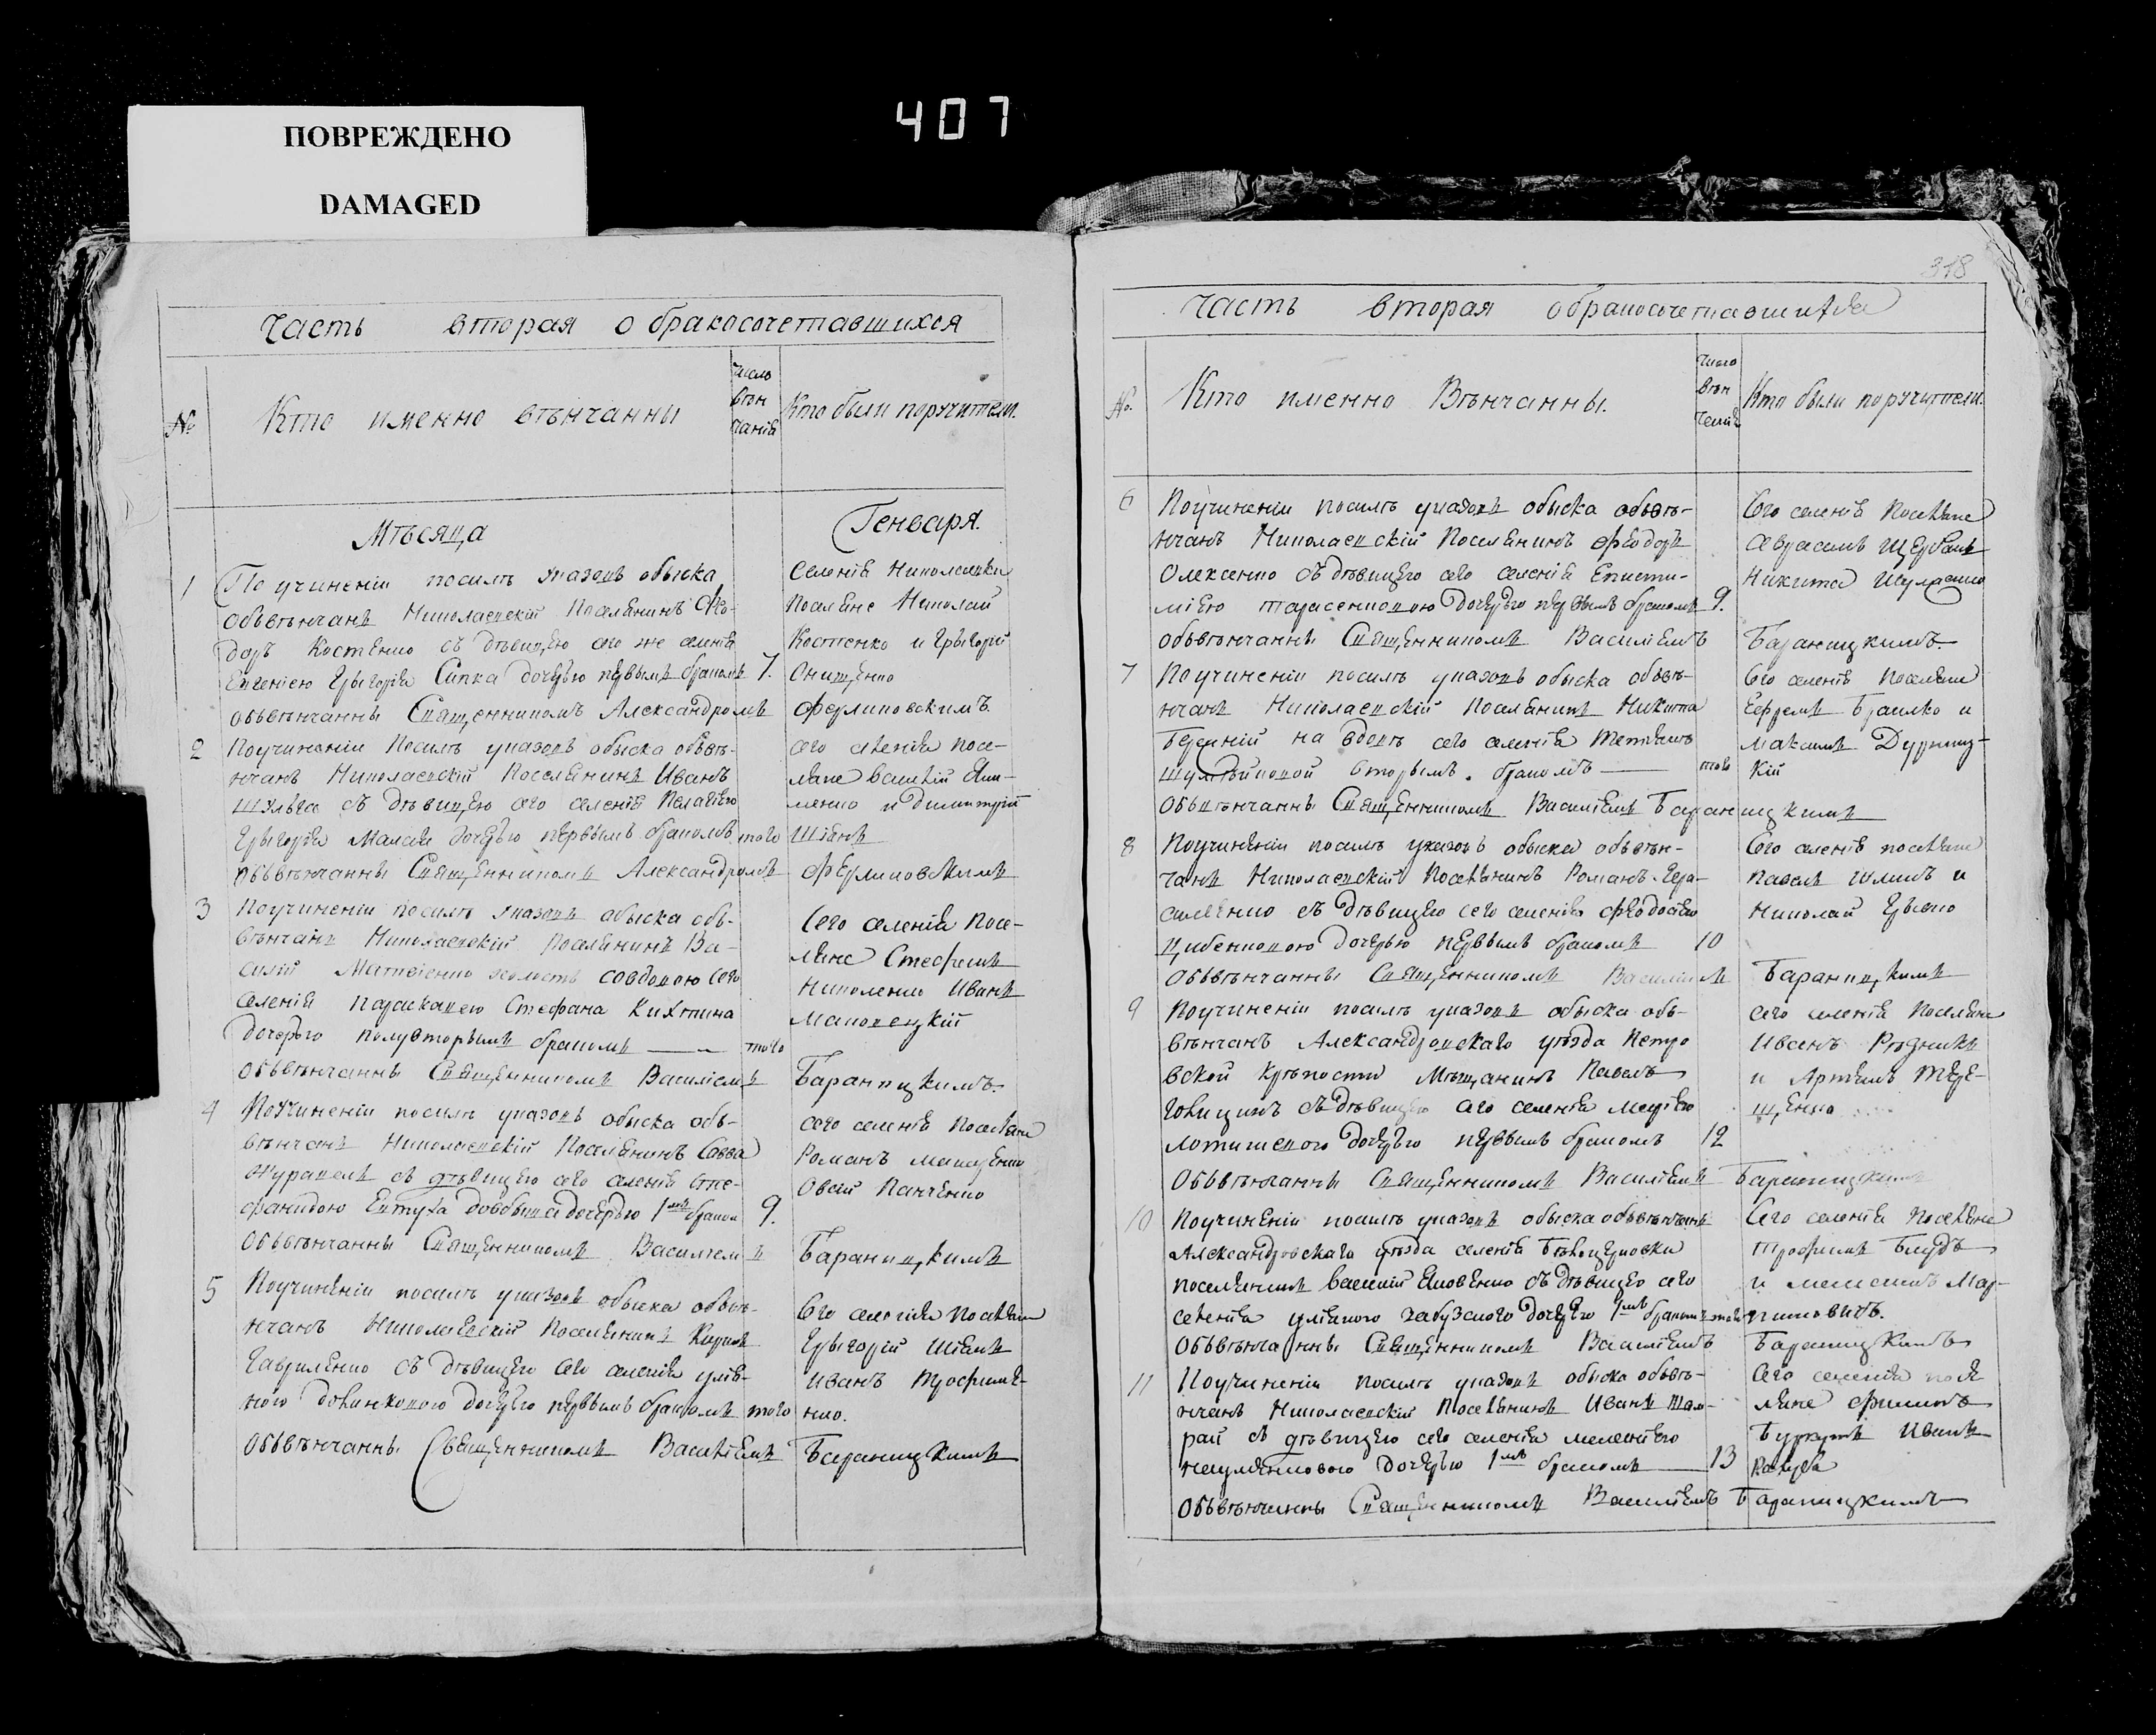 ПОВРЕЖДЕНО
DAMAGED
407
Часть вторая о бракосочетавшихся
№
Кто именно вѣнчанны
число вѣн чанія
Кто были поручители.
Мѣсяца Генваря.
1 По учиненіи посилѣ указовъ обыска
объвѣнчанъ Николаевскій Поселянинъ Фео-
доръ Костенко съ дѣвицею сего же селенія
Евгеніею Грыгорія Сипка дочерью первымъ бракомъ 7.
объвѣнчанны Священникомъ Александромъ
Селенія Николаевки
Поселяне Николай
Костенко и Грыгорій
Онищенко
Ферлиповскимъ.
2 Поучиненіи Посилѣ указовъ обыска объвѣ-
нчанъ Николаевскій Поселянинъ Иванъ
Шульга съ дѣвицею сего селенія Пелагіею
Грыгорія дочерью первымъ бракомъ того
объвѣнчанны Священникомъ Александромъ
сего селенія посе-
ляне Василій
и Димитрій
Шіянъ
Ферлиповскимъ
3 Поучиненіи посилѣ указовъ обыска объ-
вѣнчанъ Николаевскій Поселянинъ Ва-
силій Матвіенко холостъ совдовою сего
селенія Параскавею Стефана Кихтина
дочерью полувторымъ бракомъ — того
объвѣнчанны Священникомъ Василіемъ
Сего селенія Посе-
ляне Стефанъ
Николенко Иванъ
Маковецкій
Бараницкимъ.
4 Поучиненіи посилѣ указовъ обыска объ-
вѣнчанъ Николаевскій Поселянинъ Савва
Журавель съ дѣвицею сего селенія Сте-
фанидою Евтуха дочерью 1мъ браком 9.
Объвѣнчанны Священникомъ Василіемъ
сего селенія Поселяне
Романъ Мащенко
Овсій Панченко
Бараницкимъ
5 Поучиненіи посилѣ указовъ обыска объвѣ-
нчанъ Николаевскій Поселянинъ
Гавриленко съ дѣвицею сего селенія улія-
ною дочерью первымъ бракомъ того
Объвѣнчанны Священникомъ Василіемъ
Сего селенія Поселяне
Грыгорій Шіянъ
Иванъ Трофиме-
нко.
Бараницкимъ
318
Часть вторая обракосочетавшихся
№.
Кто именно Вѣнчанны.
число вѣн чанія
Кто были поручители.
6 Поучиненіи посилѣ указовъ обыска объвѣ-
нчанъ Николаевскій Поселянинъ Феодоръ
Олексенко съ дѣвицею сего селенія Еписти-
міею Тарасенковою дочерью первымъ бракомъ 9.
объвѣнчанны Священникомъ Василіемъ
Сего селенія Поселяне
Щербань
Никита
Бараницкимъ.
7 Поучиненіи посилѣ указовъ обыска объвѣ-
нчанъ Николаевскій Поселянинъ Никита
на вдовѣ сего селенія
вторымъ бракомъ — того
Объвѣнчанны Священникомъ Василіемъ Бараницкимъ
Сего селенія Поселяне
Ефремъ Браилко и
Максимъ Дурниц-
кій
8 Поучиненіи посилѣ указовъ обыска объвѣн-
чанъ Николаевскій Поселянинъ Романъ Гера-
сименко съ дѣвицею сего селенія Феодосіею
Цибенковою дочерью первымъ бракомъ 10
Объвѣнчанны Священникомъ Василіемъ
Сего селенія поселяне
Павелъ и
Николай
Бараницкимъ
9 Поучиненіи посилѣ указовъ обыска объ-
вѣнчанъ Александровскаго уѣзда Петро
вской крѣпости Мѣщанинъ Павелъ
съ дѣвицею сего селенія
дочерью первымъ бракомъ 12
Объвѣнчанны Священникомъ Василіемъ
сего селенія Поселяне
Иванъ Рѣзникъ
и Артемъ Тере-
щенко
Бараницкимъ
10 Поучиненіи посилѣ указовъ обыска объвѣнчанъ
Александровскаго уѣзда селенія
поселянинъ Василій Яковенко съ дѣвицею сего
селенія уліяною дочерью 1мъ бракомъ того
Объвѣнчанны Священникомъ Василіемъ
Сего селенія поселяне
Трофимъ Блудъ
и Мар-
тиновичъ.
Бараницкимъ
11 Поучиненіи посилѣ указовъ обыска объвѣ-
нчанъ Николаевскій Поселянинъ Иванъ Шам-
рай съ дѣвицею сего селенія меланіею
дочерью 1мъ бракомъ — 13
Объвѣнчанны Священникомъ Василіемъ
Сего селенія посе
ляне Филипъ
Буркутъ Иванъ
Бараницкимъ